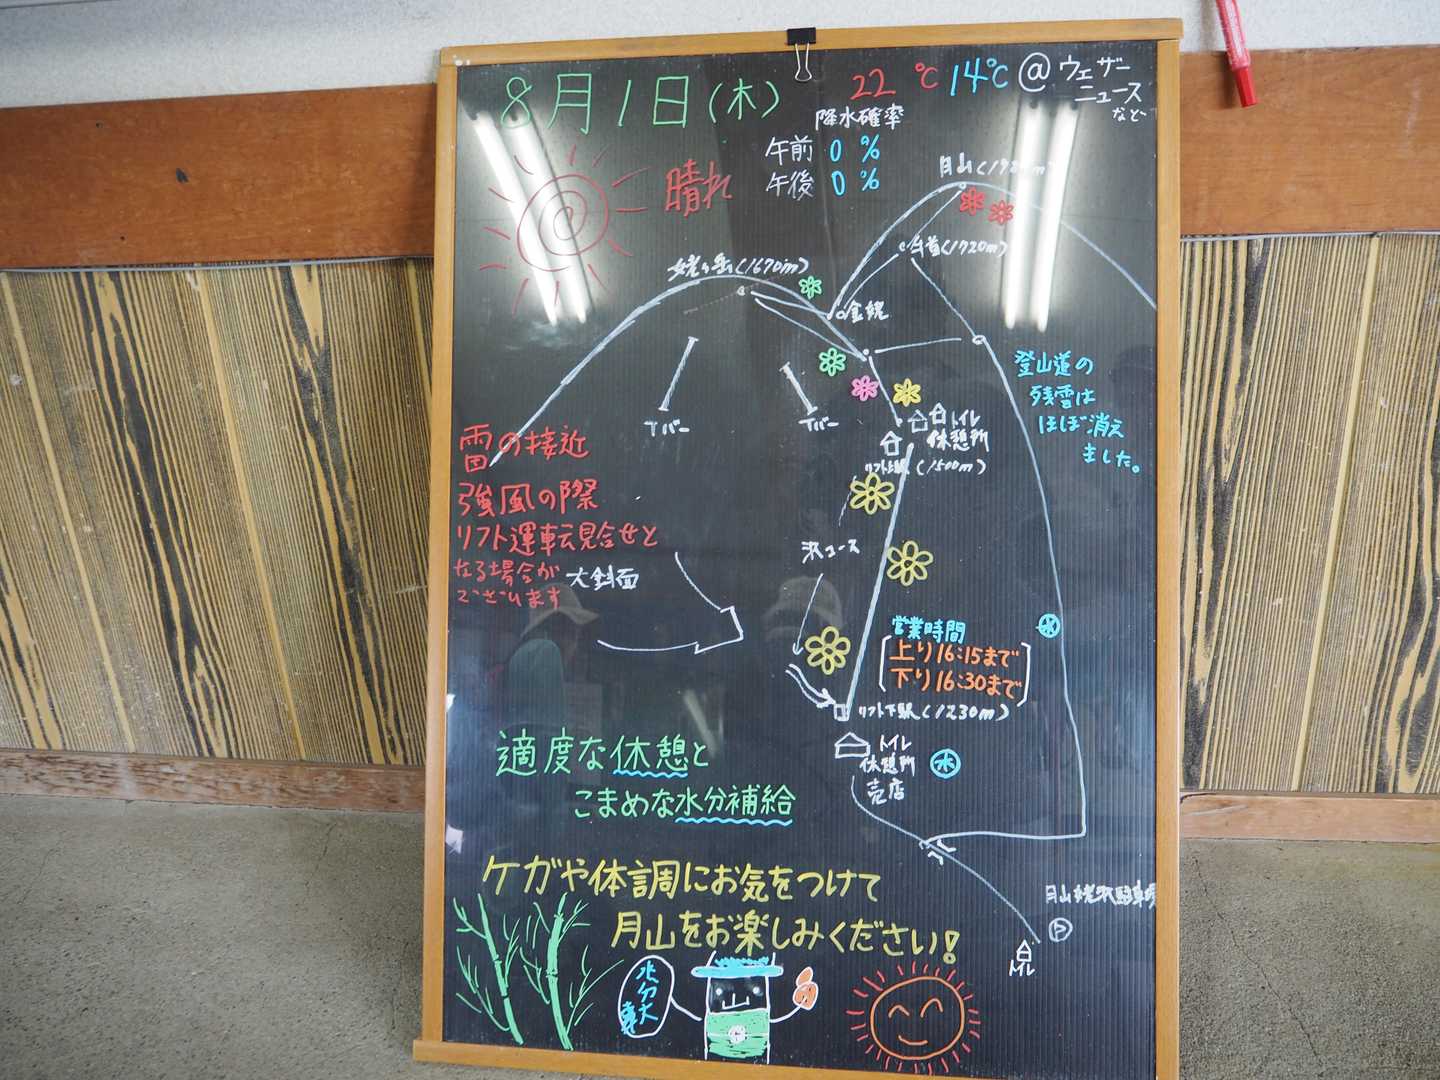 8月1日(木)
22℃ 14℃ @ウェザー
ニュース
など
降水確率
午前 0 %
午後 0 %
晴れ
姥ヶ岳(1670m)
牛首(1720m)
金姥
登山道の
残雪は
ほぼ消え
ました。
Tバー
Tバー
トイレ
休憩所
リフト上駅(1500m)
雷の接近
強風の際
リフト運転見合せと
なる場合が
ございます
大斜面
沢コース
営業時間
上り16:15まで
下り16:30まで
水
リフト下駅(1230m)
トイレ
休憩所
売店
水
適度な休憩と
こまめな水分補給
ケガや体調にお気をつけて
月山をお楽しみください!
月山姥沢駐車場
P
トイレ
水分大事